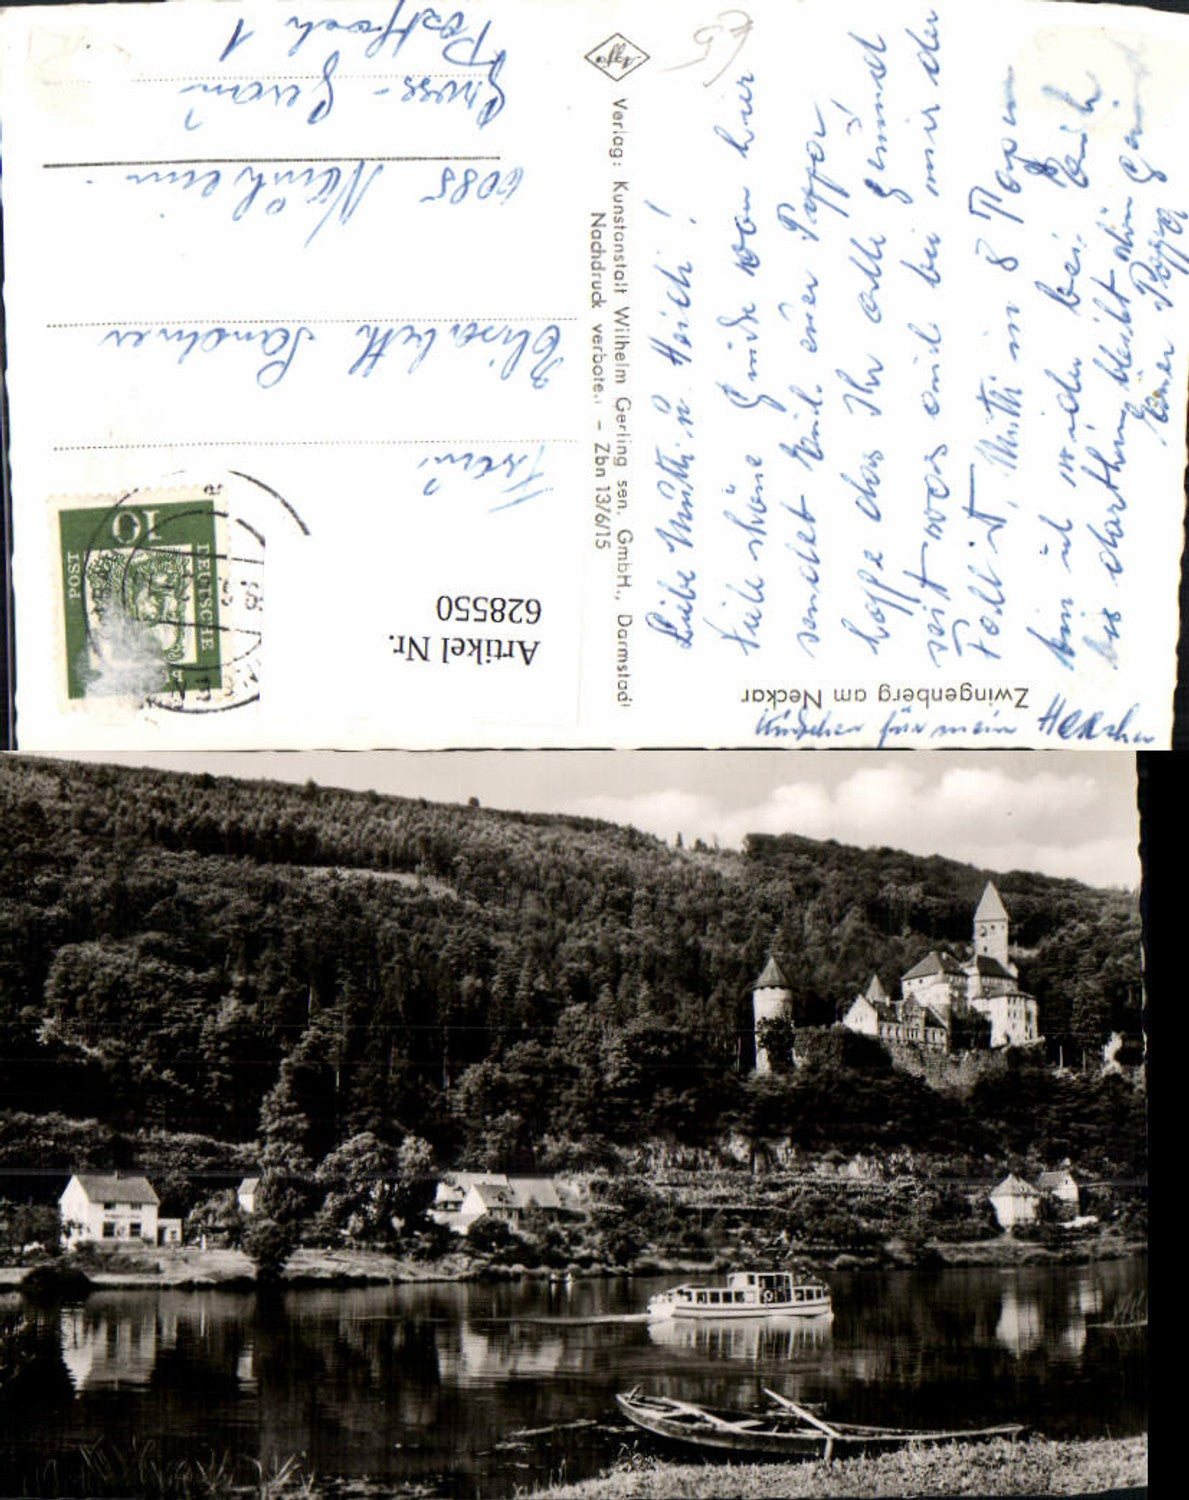 Zwingenberg am Neckar
Liebe Mutti u. Heidi!
Viele schöne Grüße von hier
sendet Euch euer Pappa,
hoffe das Ihr alle Gesund
seit was auch bei mir der
Fall ist, Mutti in 8 Tagen
bin ich wieder bei Euch
bis dorthin bleibt schön Gesund
Euer Pappa
Küßchen für mein
Agfa
Verlag: Kunstanstalt Wilhelm Gerling sen. GmbH., Darmstadt
Nachdruck verboten - Zbn 13/6/15
DEUTSCHE
POST
10
Artikel Nr.
628550
Elisabeth Sandner
6085 Nauheim
Gross-Gerau
Postfach 1